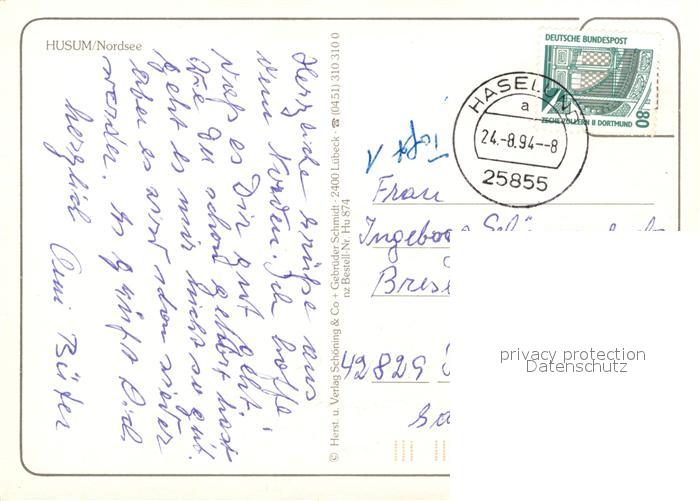 HUSUM/Nordsee
Herzliche Grüße aus
dem Norden. Ich hoffe
daß es Dir gut geht.
Wie Du schon gehört hast
geht es mir nicht so gut.
aber es wird schon wieder
werden. Es grüßt Dich
herzlich Anni
© Herst. u. Verlag Schöning & Co + Gebrüder Schmidt · 2400 Lübeck · ☎ (0451) 310 310 0
nz Bestell-Nr. Hu 874
DEUTSCHE BUNDESPOST
80
ZECHE ZOLLERN II DORTMUND
HASELUN
a
24.-8.94--8
25855
Frau
42829
privacy protection
Datenschutz